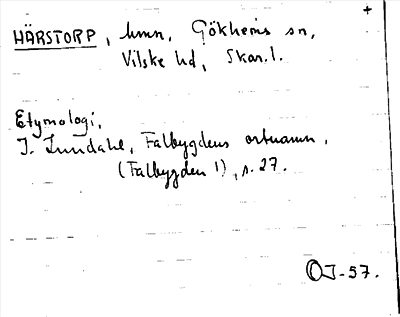 +
HÄRSTORP, hmn, Gökhems sn,
Vilske hd, Skar.l.
Etymologi,
J. Lundahl, Falbygdens ortnamn,
(Falbygden 1), s. 27.
OJ-57.